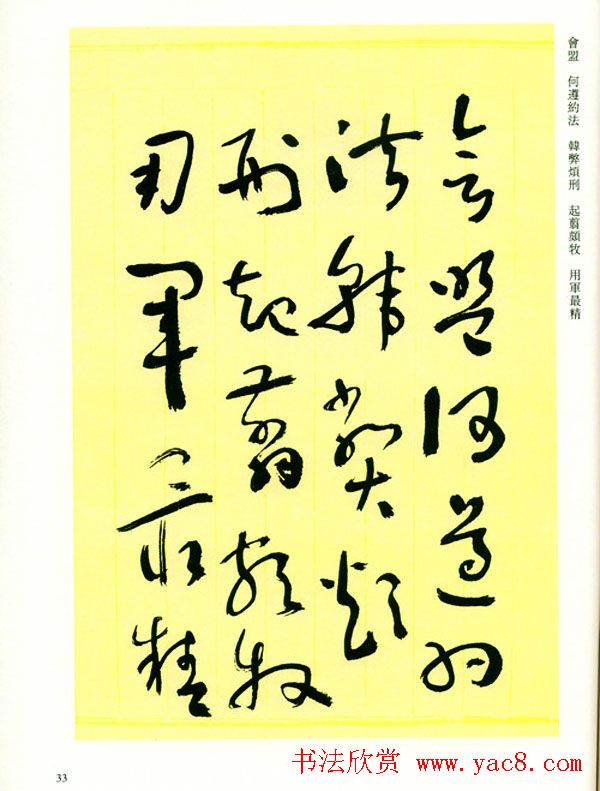 會盟 何遵約法 韓弊煩刑 起翦頗牧 用軍最精
會盟何遵約
法韓弊煩
刑起翦頗牧
用軍最精
33
书法欣赏 www.yac8.com